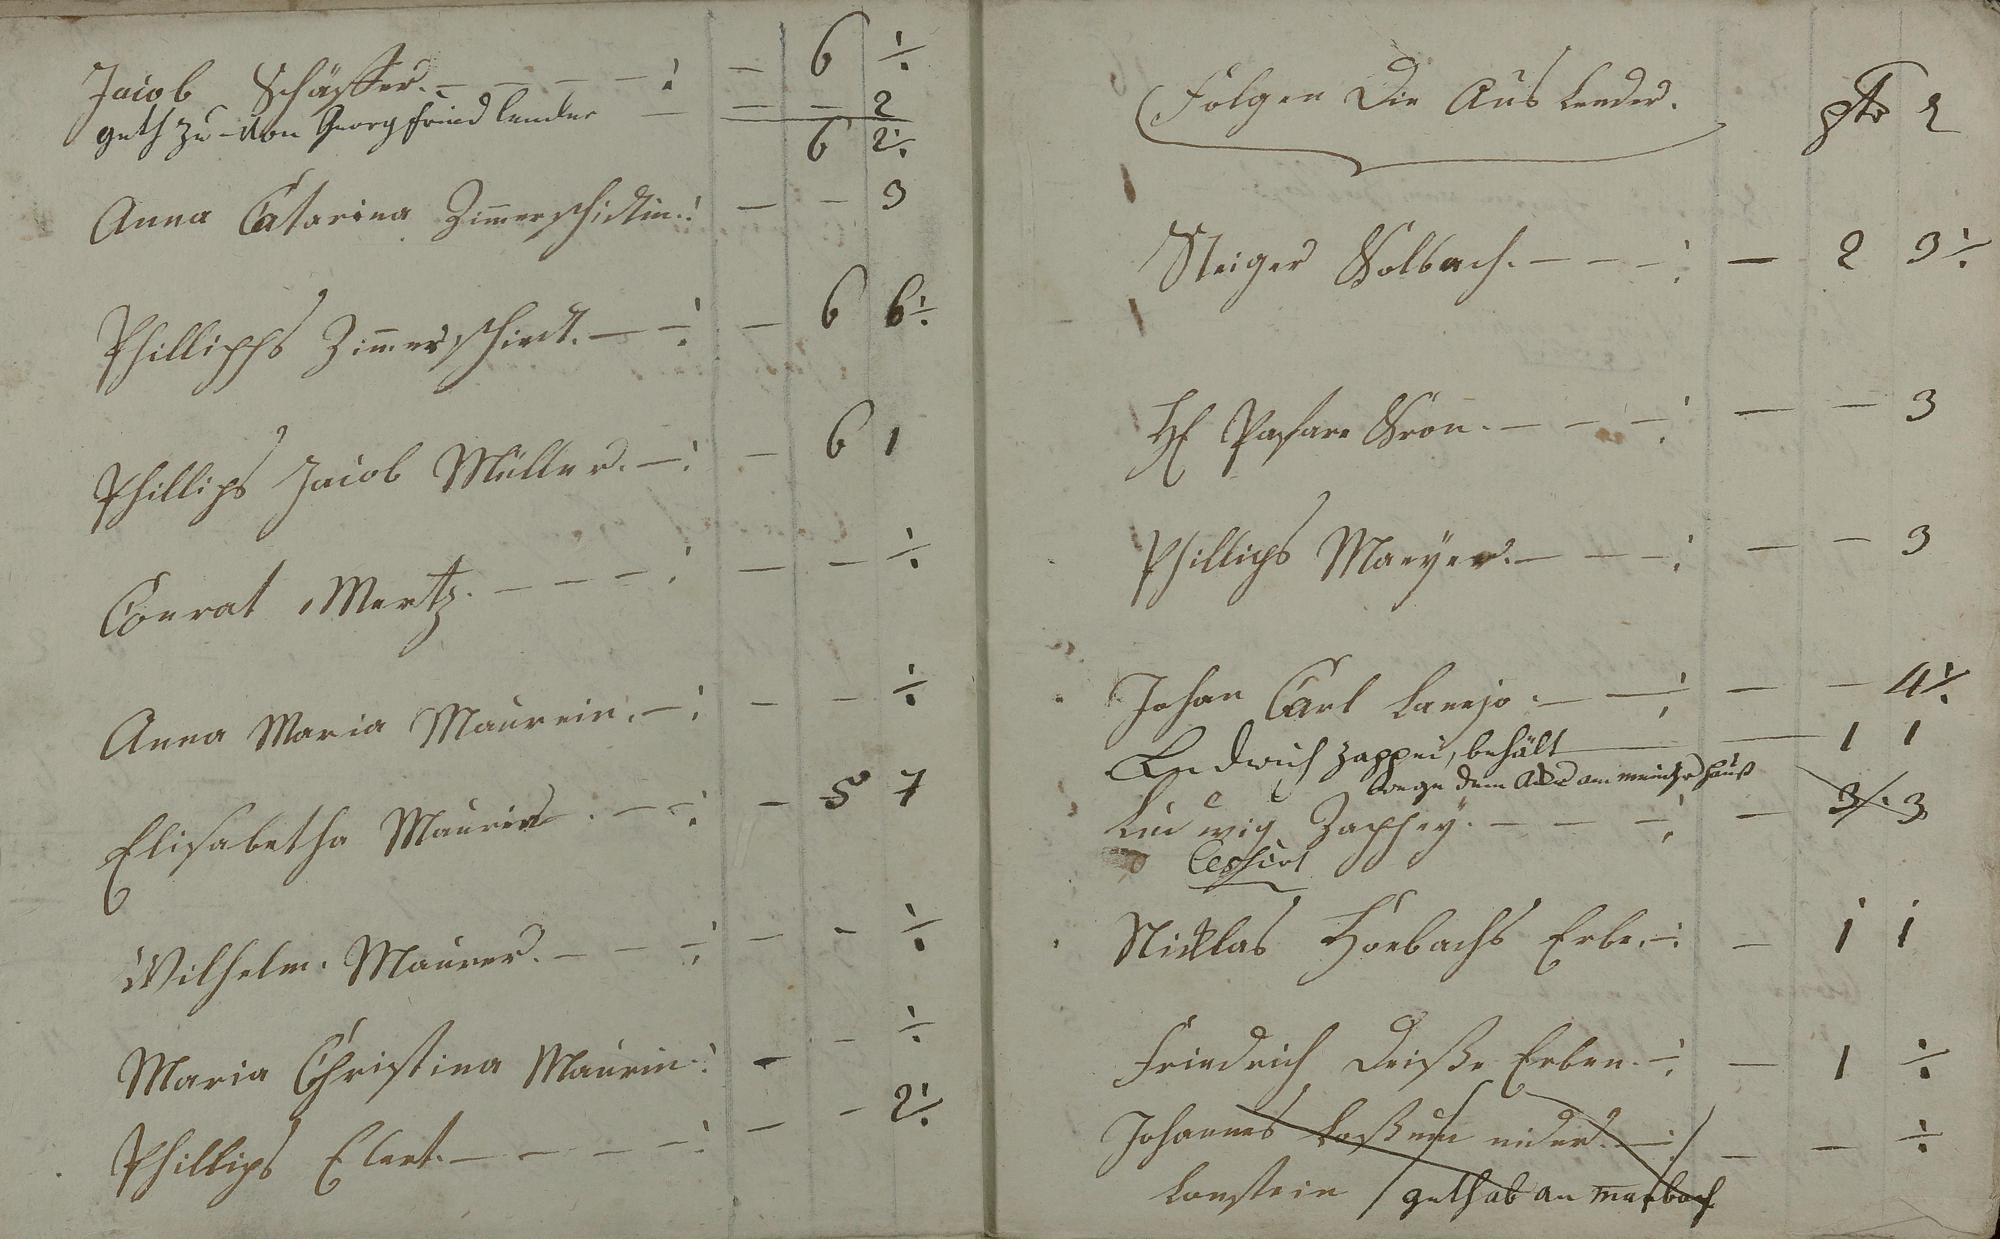 Jacob Schäffer. — — — — — 6 ½
geth zu von Georg friedlender — — — 2
6 2½
Anna Catarina Zimmerschidtin. — — 3
Phillipps Zimmerschiedt. — — — 6 6½
Phillips Jacob Müller. — — 6 1
Conrat Mertz. — — — — — ½
Anna Maria Maurerin. — — — ½
Elisabetha Maurerin. — — — 5 7
Wilhelm. Maurer. — — — — — ½
Maria Christina Maurerin — — ½
Phillips Elert. — — — — — — 2½
Folgen Die Aus Lender.
Steiger Volbach. — — — — — 2 3½
H Pafare Vron. — — — — — 3
Phillips Maeyer. — — — — — 3
Johan Carl Lanejo. — — — — 4½
Ludwich zappei, behält — 1 1
wege dem am hauß
Ludwig Zaphey. — — — — 3 3
Cessirt
Nicklas Horbachs Erbe. — — 1 1
Friedrich Deiße Erben. — — 1 ½
Johannes nider — — — ½
Lonstein geth ab an marbach